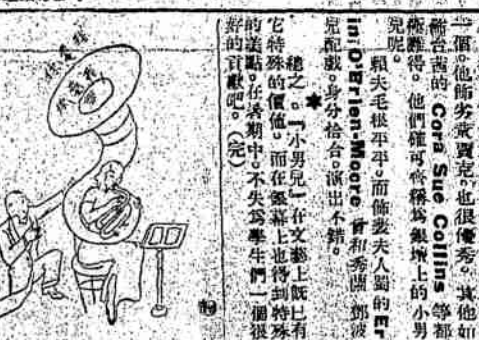 一個。他飾劣蔵賈克。也很優秀。其他如
飾台茜的 Cora Sue Collins 等都
極難得。他們確可當稱爲銀壇上的小男
兒呢。
賴夫毛根平平。而飾裘夫人蜀的 Er
in O'Brien-Moore 曾和秀蘭鄧波
兒配戲。身分恰合。演出不錯。
★
總之。『小男兒』在文藝上既已有
它特殊的價值。而在銀幕上也得到特殊
的美點。在暑期中。不失爲學生們一個很
好的貢獻吧。(完)